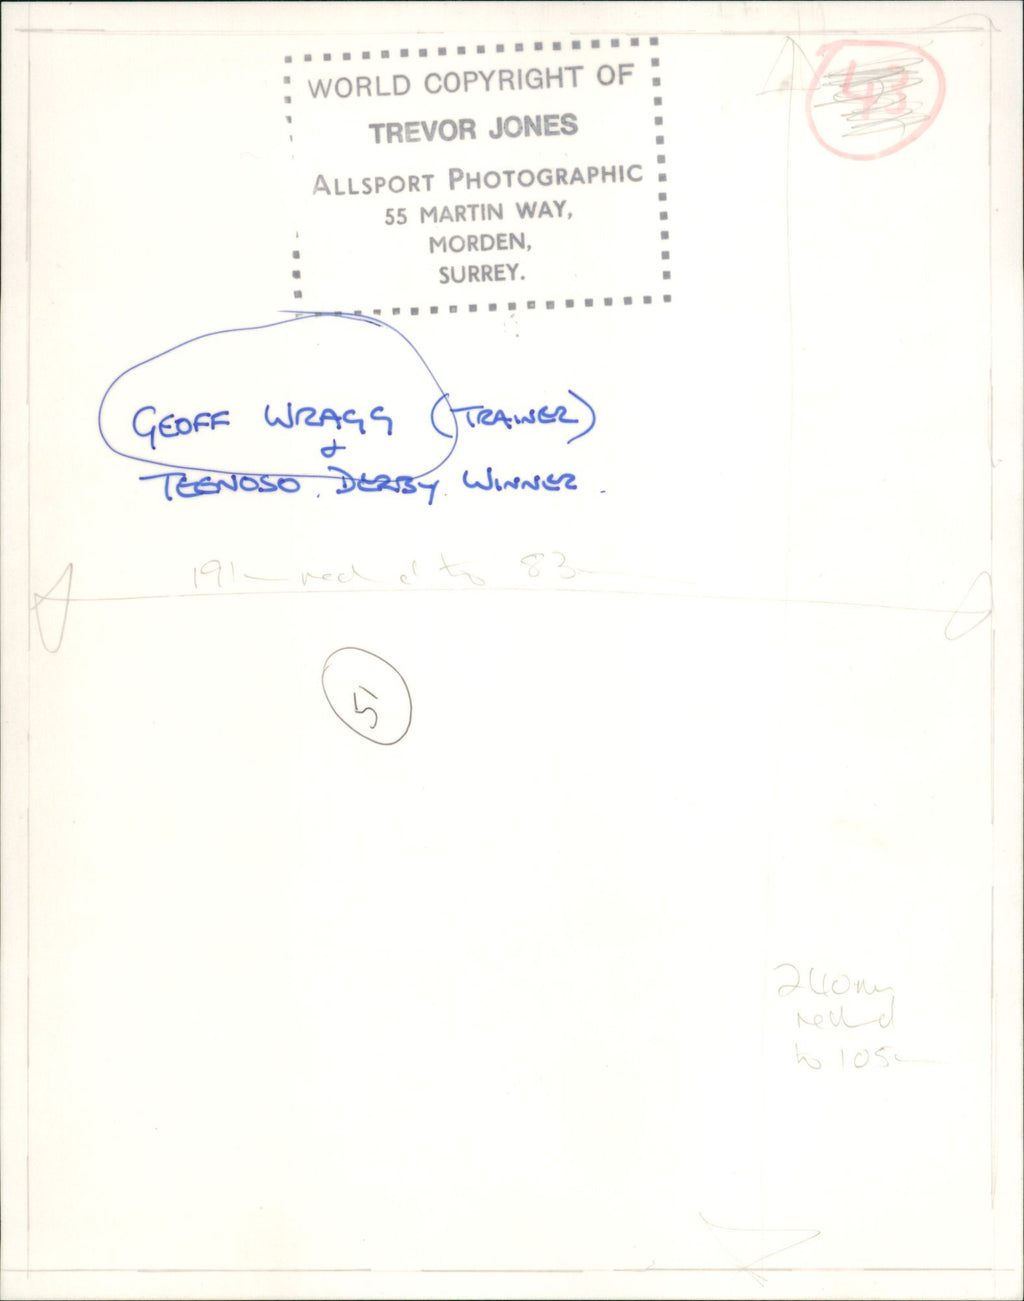 WORLD COPYRIGHT OF
TREVOR JONES
ALLSPORT PHOTOGRAPHIC
55 MARTIN WAY,
MORDEN,
SURREY.
43
GEOFF WRAGG (TRAINER)
+
TEENOSO. DERBY WINNER.
191 red'd to 83
5
240mm
red'd
to 105